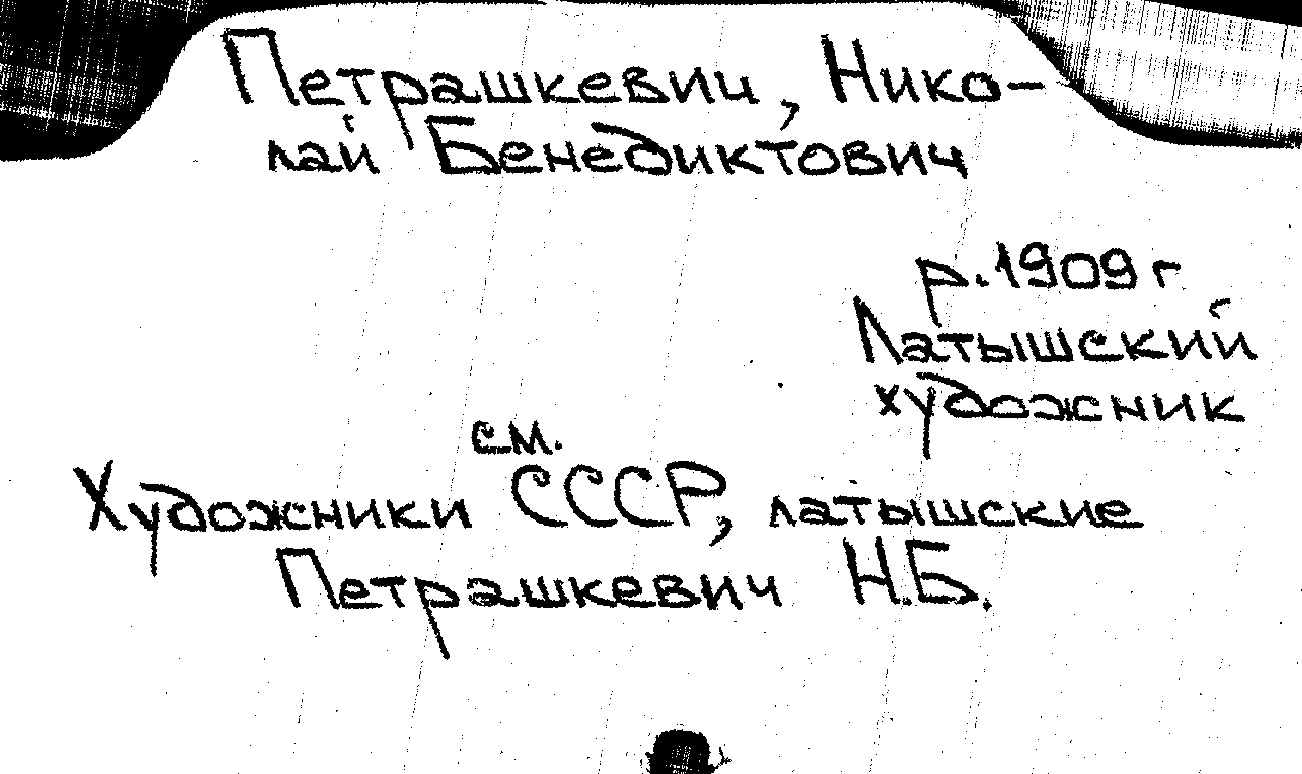 Петрашкевич, Нико-
лай Бенедиктович
р. 1909 г
Латышский
художник
см.
Художники СССР, латышские
Петрашкевич Н.Б.